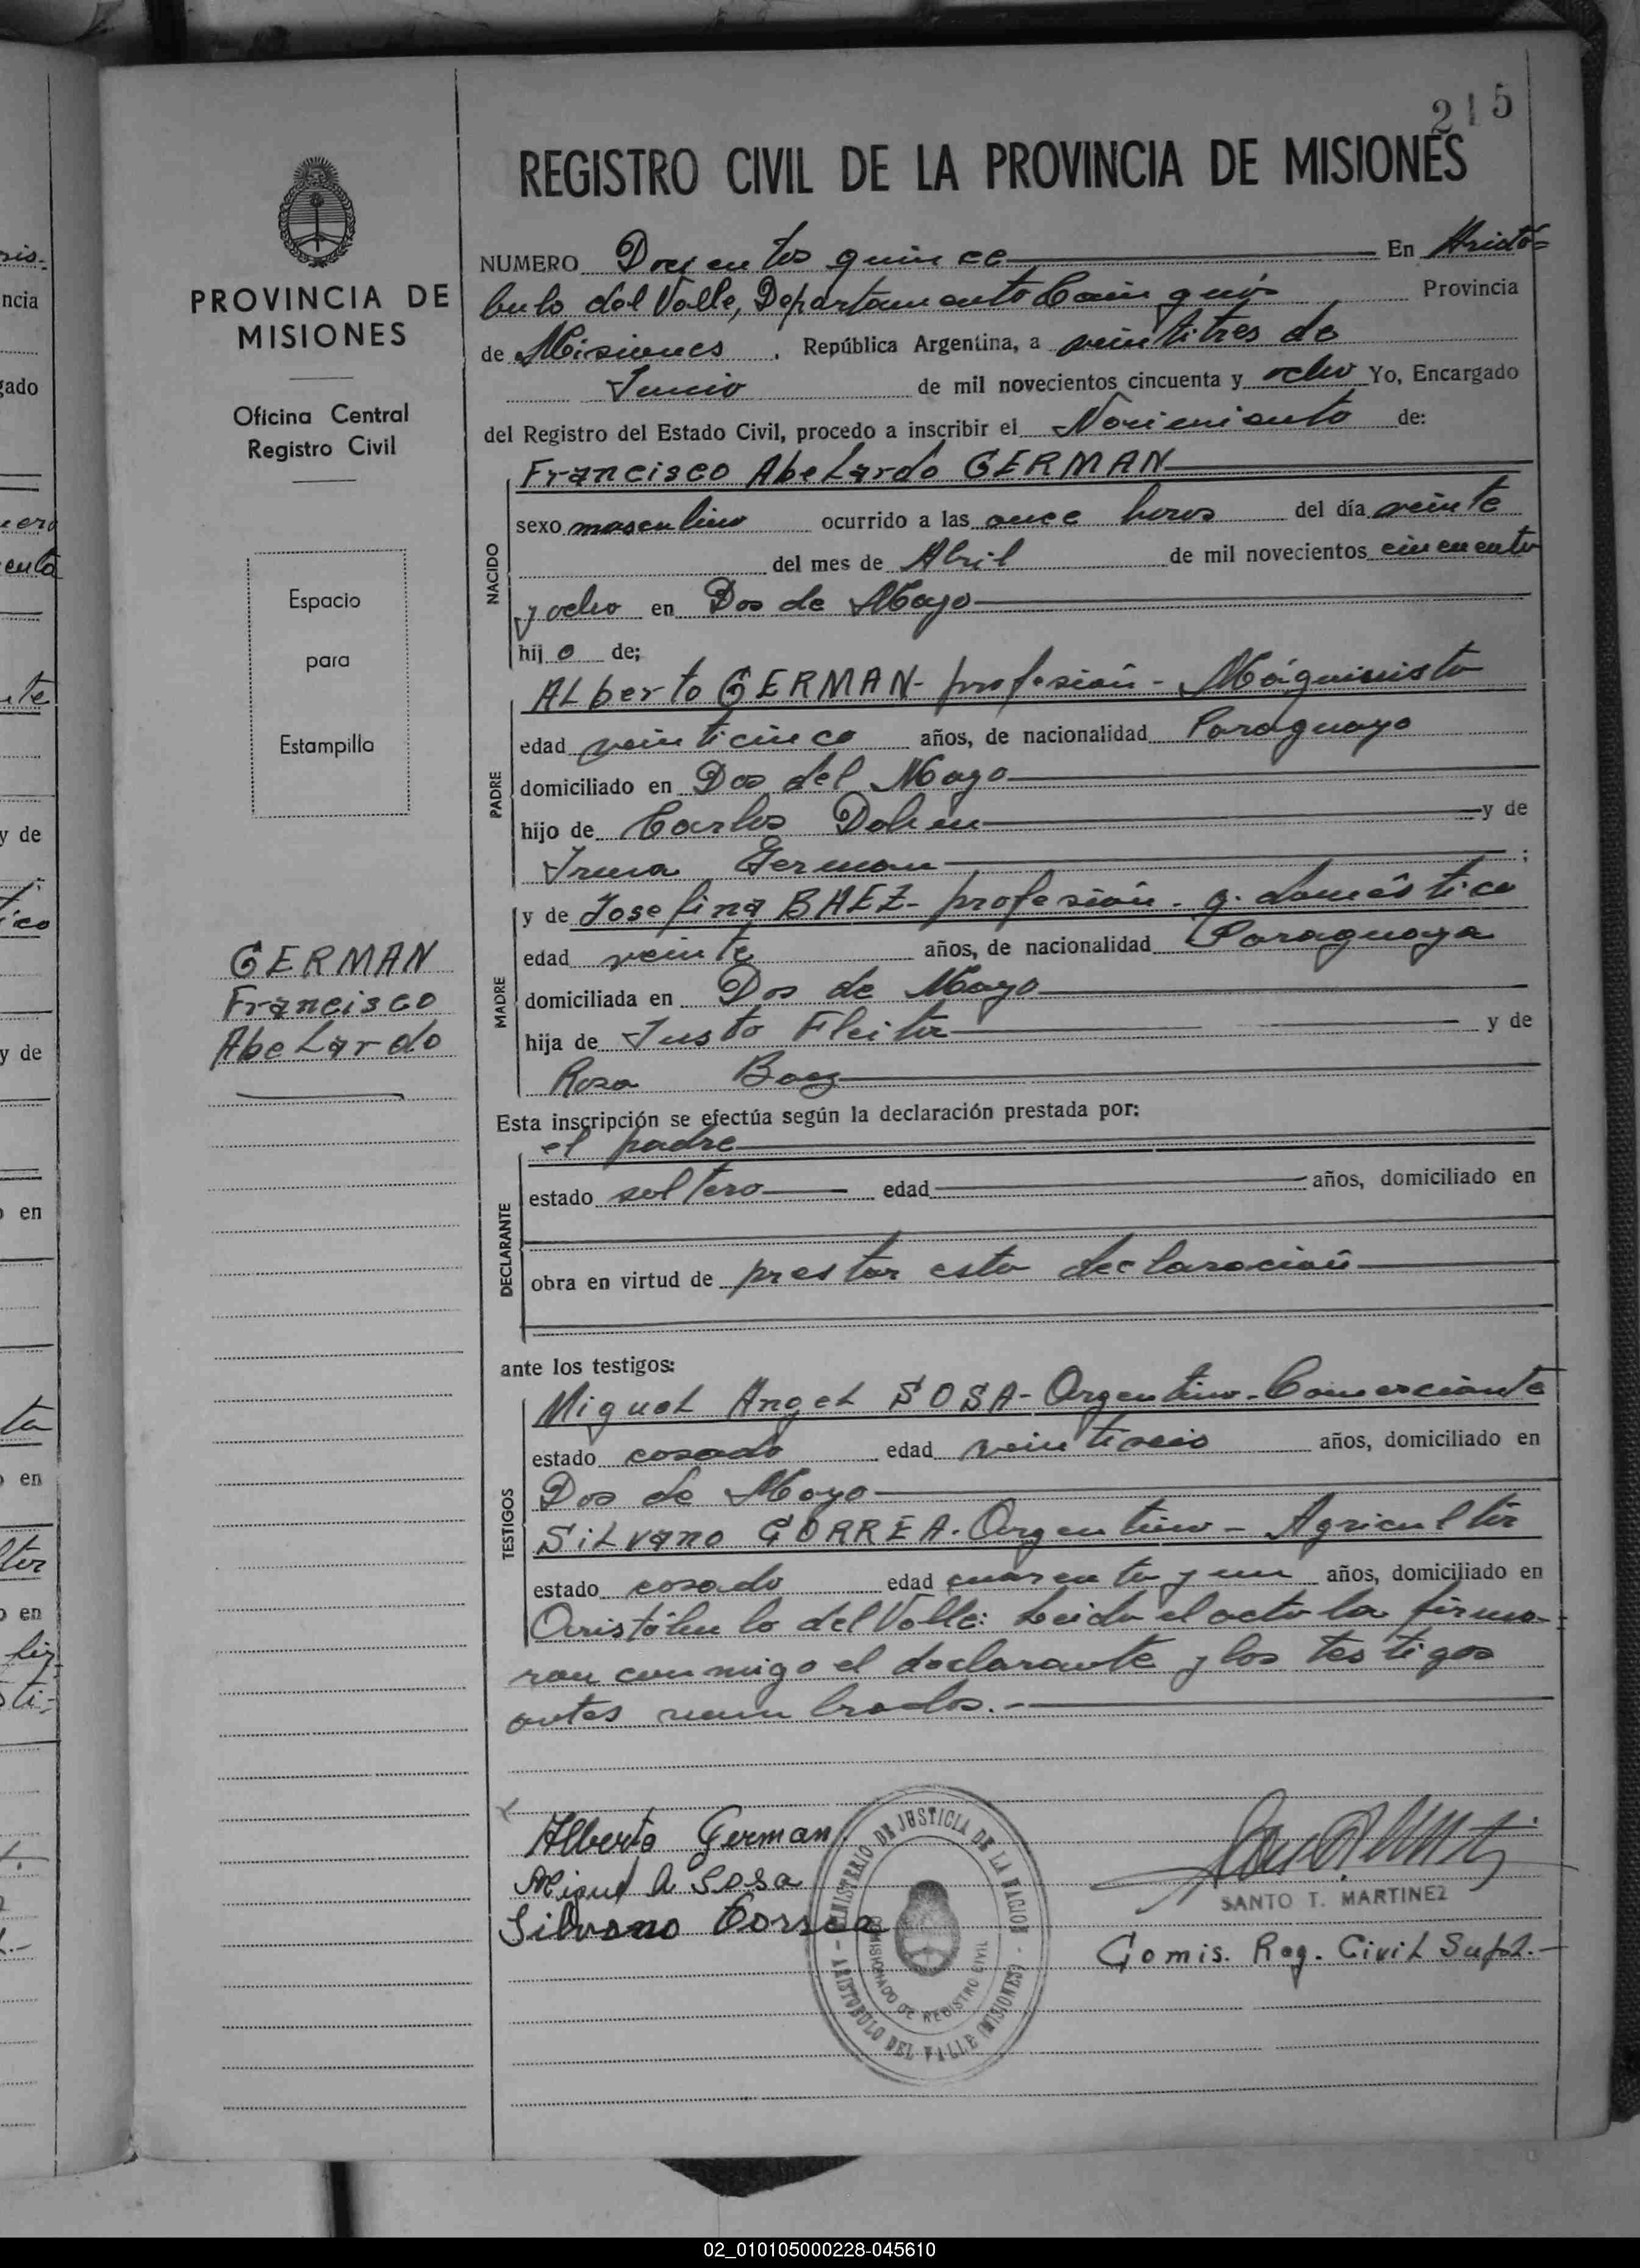 215
REGISTRO CIVIL DE LA PROVINCIA DE MISIONES
PROVINCIA DE
MISIONES
Oficina Central
Registro Civil
Espacio
para
Estampilla
GERMAN
Francisco
Abelardo
NUMERO Doscientos quince En Aristó=
bulo del Valle, Departamento Cainguás Provincia
de Misiones, República Argentina, a veintitres de
Junio de mil novecientos cincuenta y ocho Yo, Encargado
del Registro del Estado Civil, procedo a inscribir el Nacimiento de:
NACIDO
Francisco Abelardo GERMAN
sexo masculino ocurrido a las once horas del día veinte
del mes de Abril de mil novecientos cincuenta
y ocho en Dos de Mayo
hijo de;
PADRE
Alberto GERMAN- profesión - Máquinista
edad veinticinco años, de nacionalidad Paraguayo
domiciliado en Dos del Mayo
hijo de Carlos y de
Irma German ;
MADRE
y de Josefina BAEZ- profesión. q. doméstico
edad veinte años, de nacionalidad Paraguaya
domiciliada en Dos de Mayo
hija de Justo Fleita y de
Rosa Baez
Esta inscripción se efectúa según la declaración prestada por:
DECLARANTE
el padre
estado soltero edad años, domiciliado en
obra en virtud de prestar esta declaración
ante los testigos:
TESTIGOS
Miguel Angel SOSA- Argentino- Comerciante
estado casado edad veintiseis años, domiciliado en
Dos de Mayo
Silvano CORREA- Argentino - Agricultor
estado casado edad cuarenta y un años, domiciliado en
Aristóbulo del Valle: Leida el acta la firma-
ron conmigo el declarante y los testigos
antes nombrados.-
Alberto German
Miguel A Sosa
Silvano Correa
MINISTERIO DE JUSTICIA DE LA NACION
COMISIONADO DE REGISTRO CIVIL
ARISTOBULO DEL VALLE (MISIONES)
SANTO T. MARTINEZ
Comis. Reg. Civil Supl.-
02_010105000228-045610